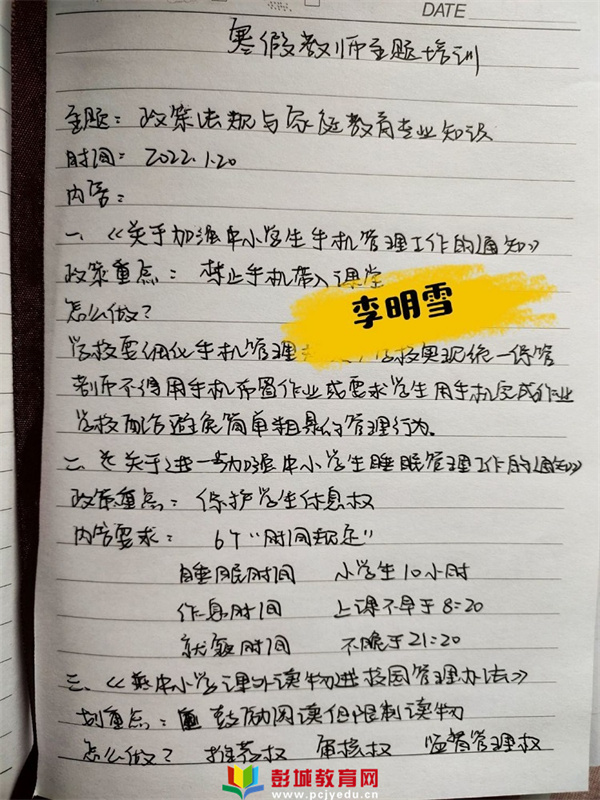 DATE
寒假教师主题培训
主题：政策法规与家庭教育专业知识
时间：2022.1.20
内容：
一、《关于加强中小学生手机管理工作的通知》
政策重点：禁止手机带入课堂
李明雪
怎么做？
学校要细化手机管理 学校实现统一保管
教师不得用手机布置作业或要求学生用手机完成作业
学校配合避免简单粗暴的管理行为.
二、《关于进一步加强中小学生睡眠管理工作的通知》
政策重点：保护学生休息权
内容要求：6个“时间规定”
睡眠时间 小学生10小时
作息时间 上课不早于8:20
就寝时间 不晚于21:20
三、《中小学课外读物进校园管理办法》
划重点：鼓励阅读但限制读物
怎么做？ 推荐权 审核权 监督管理权
彭城教育网
www.pcjyedu.cn